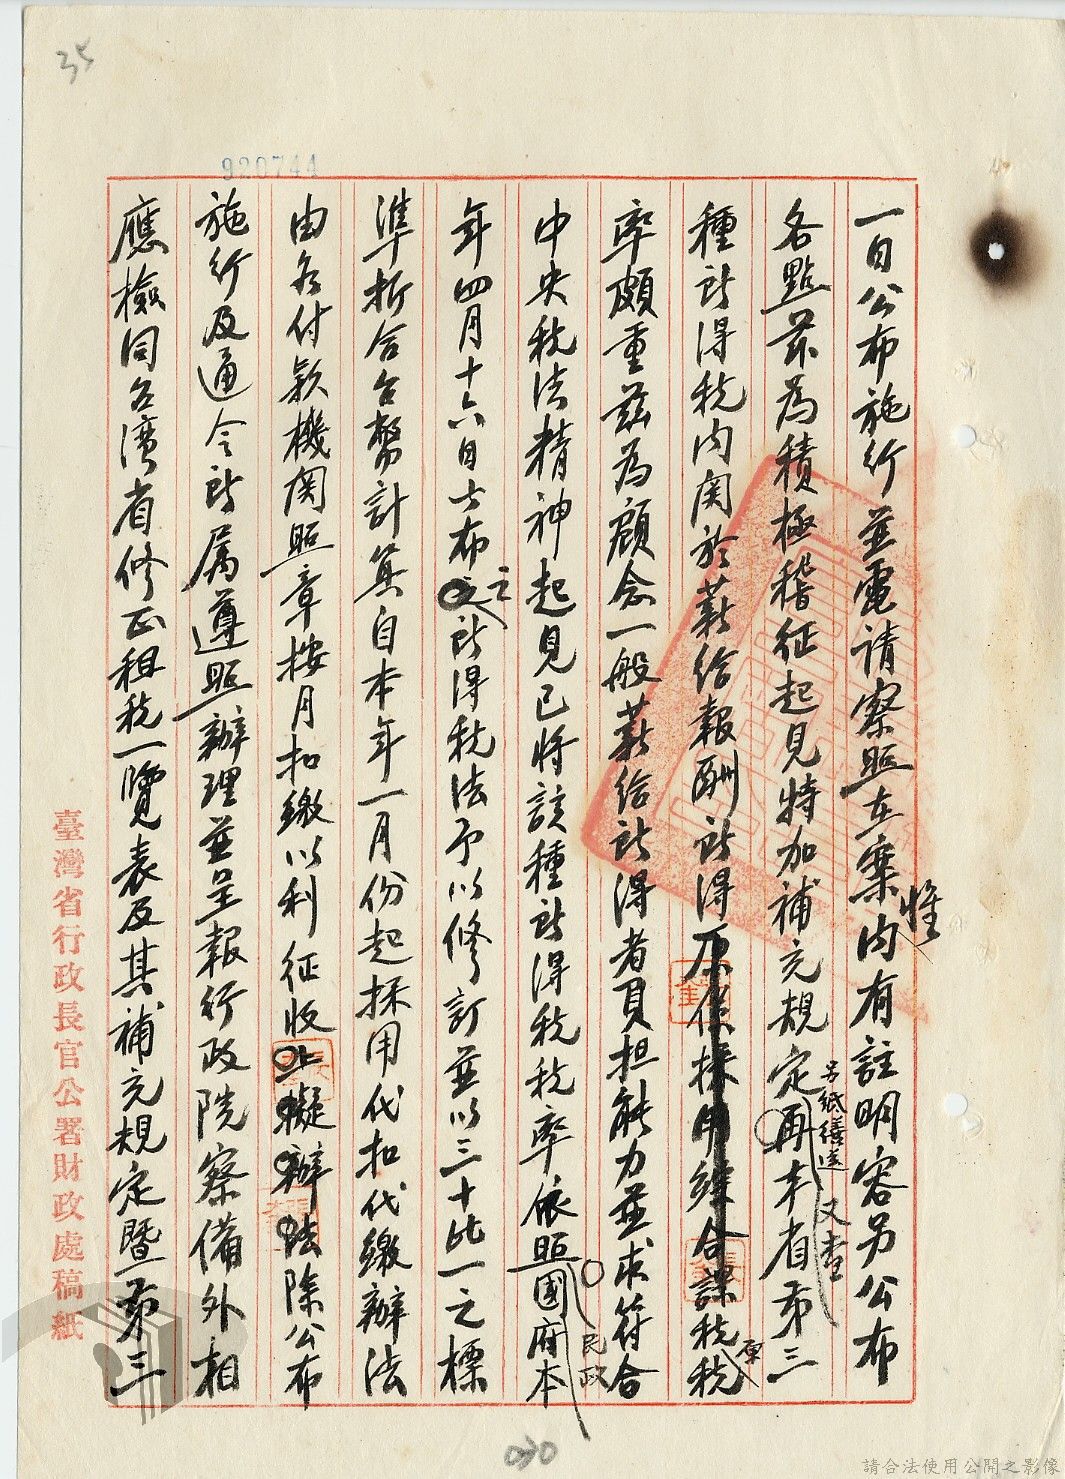 35
920744
一日公布施行並電請察照在案內有註明容另公布
惟
各點茲為積極稽征起見特加補充規定再本省第三
另紙繕送 又查
種所得稅內関於薪給報酬所得原係採用綜合課稅稅
原
率頗重茲為顧念一般薪給所得者負担能力並求符合
中央稅法精神起見已將該種所得稅稅率依照國府本
民政
年四月十六日公布之所得稅法予以修訂並以三十比一之標
準折合台幣計算自本年一月份起採用代扣代繳辦法
由各付款機関照章按月扣繳以利征收上擬辦法除公布
施行及通令所属遵照辦理並呈報行政院察備外相
應檢同台灣省修正租稅一覽表及其補充規定暨第三
臺灣省行政長官公署財政處稿紙
030
請合法使用公開之影像